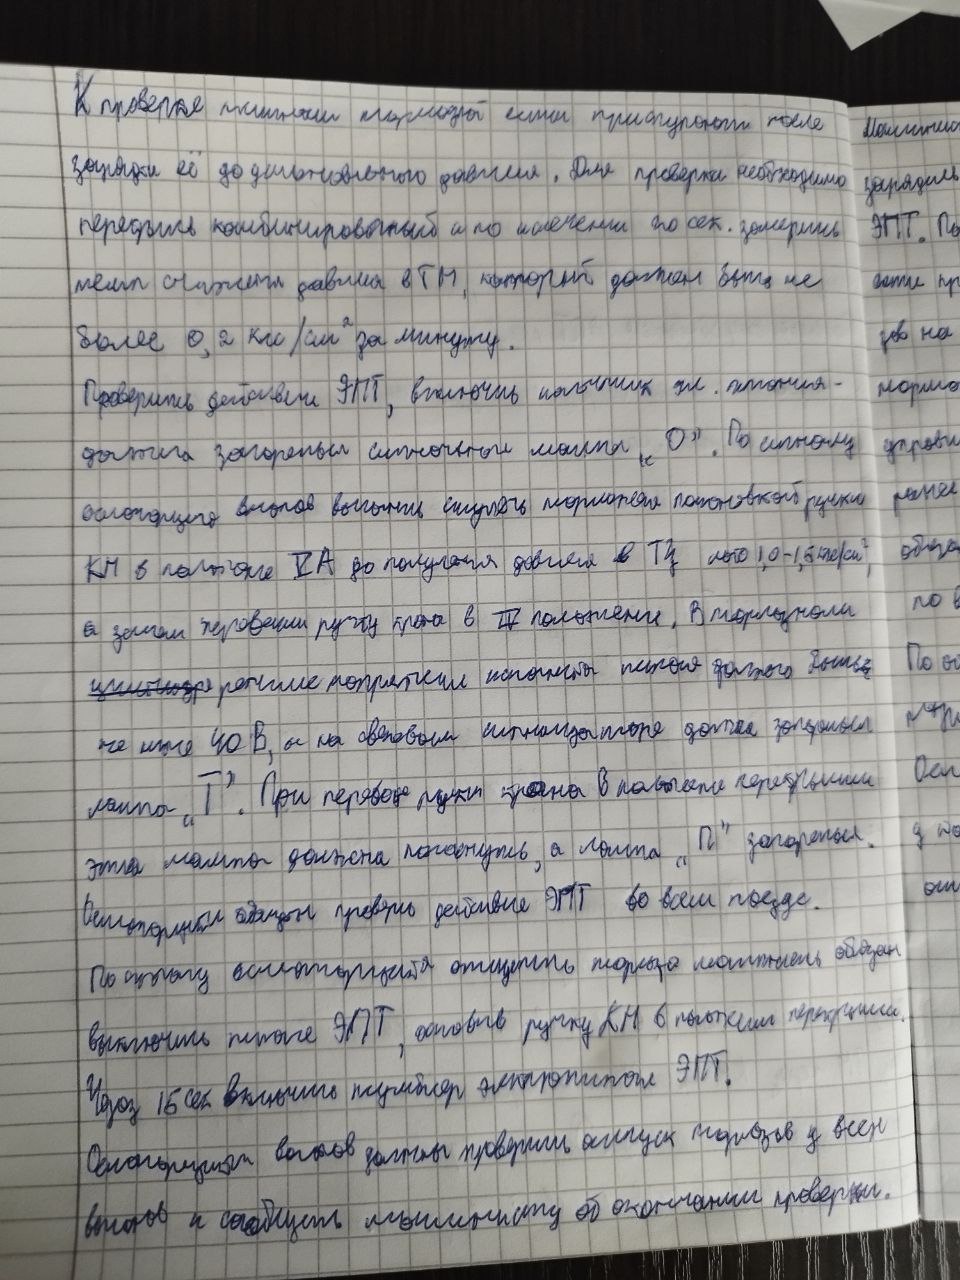 К проверке плотности тормозной сети приступают после
зарядки её до установленного давления. Для проверки необходимо
перекрыть комбинированный и по истечении 20 сек. замерить
темп снижения давления в ТМ, который должен быть не
более 0,2 кгс/см² за минуту.
Проверить действие ЭПТ, включить источник эл. питания -
должна загореться сигнальная лампа „О”. По сигналу
осмотрщика вагонов выполнить ступень торможения постановкой ручки
КМ в положение VА до получения давления в ТЦ 1,0-1,5 кгс/см²,
а затем перевести ручку крана в IV положение. В тормозном
режиме напряжение источника питания должно быть
не ниже 40 В, а на световом сигнализаторе должна загореться
лампа „Т”. При переводе ручки крана в положение перекрыши
эта лампа должна погаснуть, а лампа „П” загореться.
Осмотрщики обязаны проверить действие ЭПТ во всем поезде.
По сигналу осмотрщика отпустить тормоза машинист обязан
выключить питание ЭПТ, оставив ручку КМ в положении перекрыши.
Через 15 сек включить тумблер электропитания ЭПТ.
Осмотрщики вагонов должны проверить отпуск тормозов у всех
вагонов и сообщить машинисту об окончании проверки.
зарядить
ЭПТ. По
зов на
по в